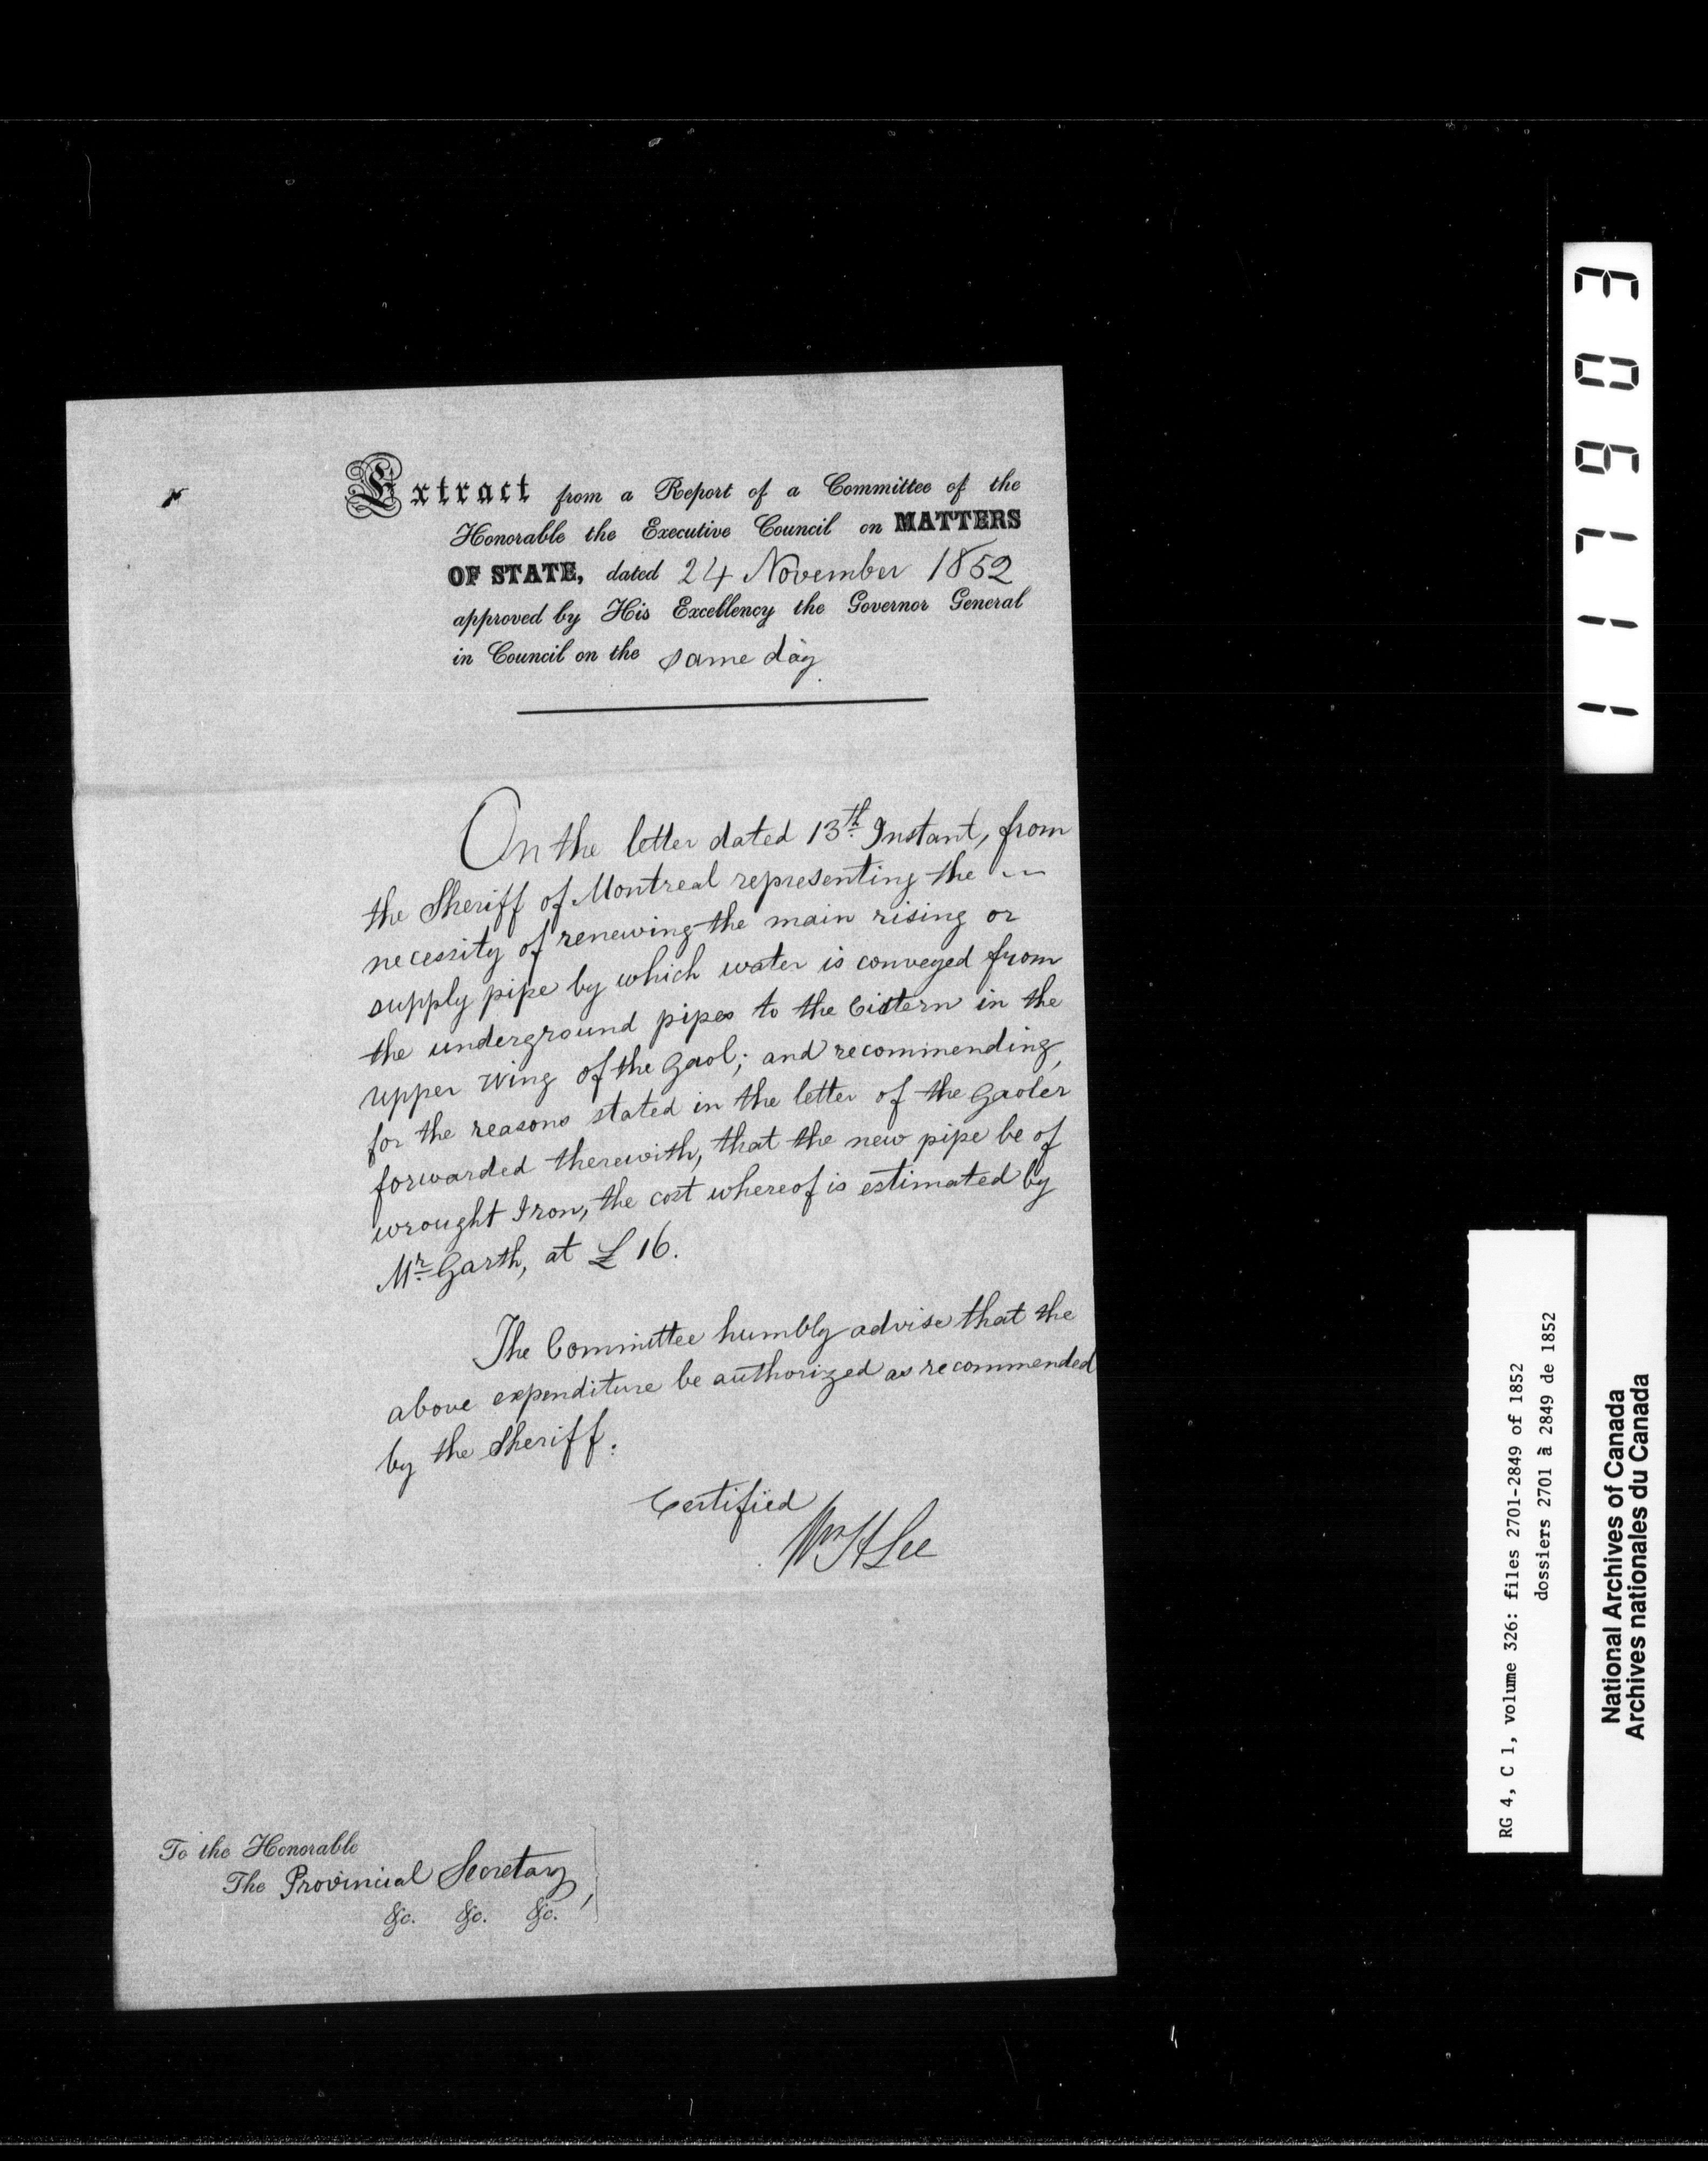 Extract from a Report of a Committee of the
Honorable the Executive Council on MATTERS
OF STATE, dated 24 November 1852
approved by His Excellency the Governor General
in Council on the same day.
On the letter dated 13th Instant, from
the Sheriff of Montreal representing the
necessity of renewing the main rising or
supply pipe by which water is conveyed from
the underground pipes to the Cistern in the
upper wing of the Gaol; and recommending,
for the reasons stated in the letter of the Gaoler
forwarded therewith, that the new pipe be of
wrought Iron, the cost whereof is estimated by
Mr Garth, at £16.
The Committee humbly advise that the
above expenditure be authorized as recommended
by the Sheriff.
Certified
Wm H Lee
To the Honorable
The Provincial Secretary,
&c. &c. &c.
117903
RG 4, C 1, volume 326: files 2701-2849 of 1852
dossiers 2701 à 2849 de 1852
National Archives of Canada
Archives nationales du Canada